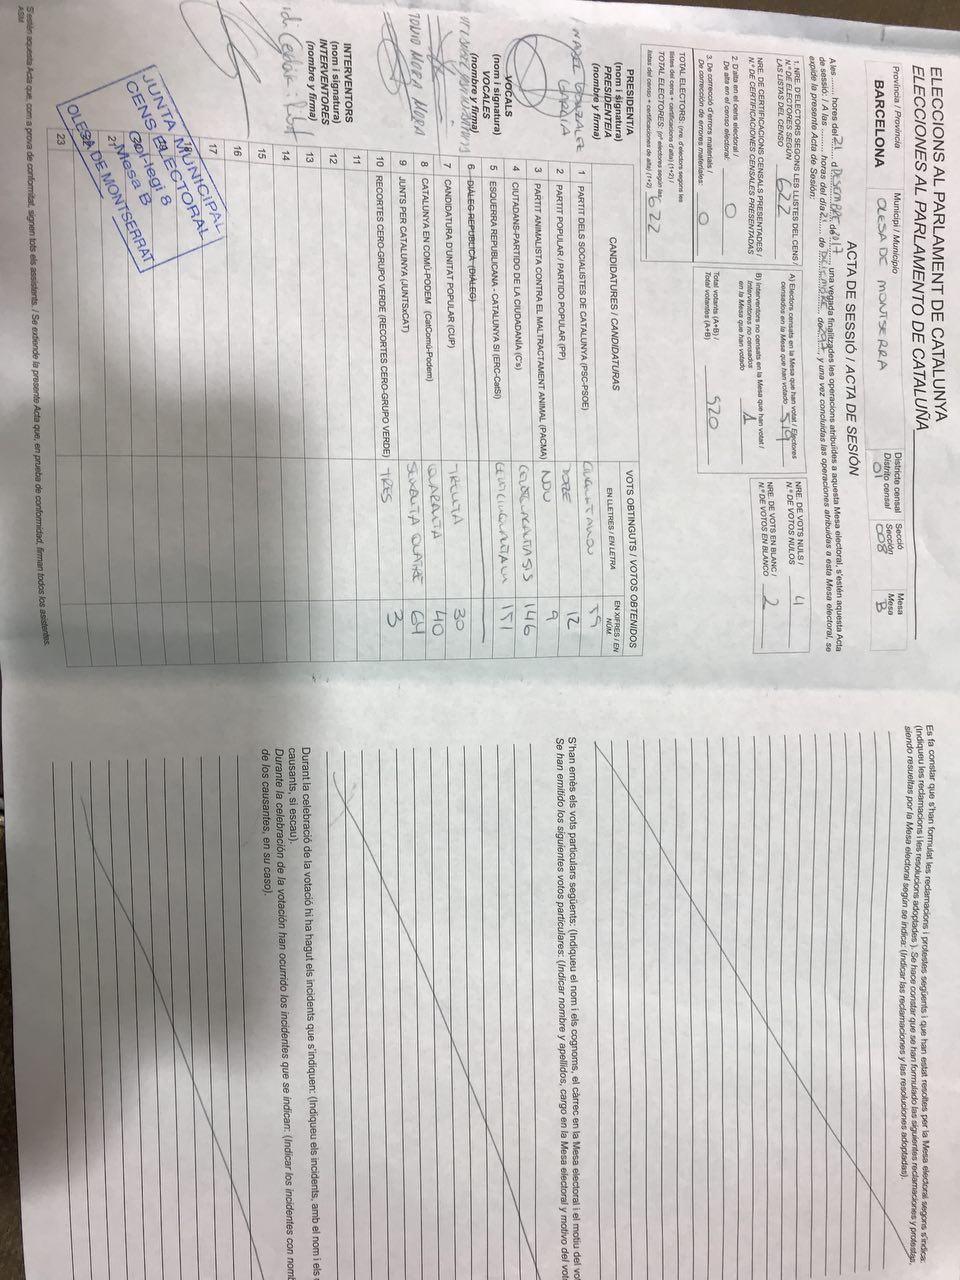 ELECCIONS AL PARLAMENT DE CATALUNYA
ELECCIONES AL PARLAMENTO DE CATALUÑA
Província / Provincia
BARCELONA
Municipi / Municipio
OLESA DE MONTSERRA
Districte censal
Distrito censal
01
Secció
Sección
008
Mesa
Mesa
B
ACTA DE SESSIÓ / ACTA DE SESIÓN
A les ........ hores del 21 d DESEMBRE de 2017, una vegada finalitzades les operacions atribuïdes a aquesta Mesa electoral, s'estén aquesta Acta
de sessió. / A las ........ horas del día 21 de DICIEMBRE de 2017, y una vez concluidas las operaciones atribuidas a esta Mesa electoral, se
expide la presente Acta de Sesión:
1. NRE. D'ELECTORS SEGONS LES LLISTES DEL CENS /
N.º DE ELECTORES SEGÚN
LAS LISTAS DEL CENSO 622
NRE. DE CERTIFICACIONS CENSALS PRESENTADES /
N.º DE CERTIFICACIONES CENSALES PRESENTADAS
2. D'alta en el cens electoral /
De alta en el censo electoral: 0
3. De correcció d'errors materials /
De corrección de errores materiales: 0
TOTAL ELECTORS: (nre. d'electors segons les
llistes del cens + certificacions d'alta) (1+2) /
TOTAL ELECTORES: (nº electores según las
listas del censo + certificaciones de alta) (1+2) 622
A) Electors censats en la Mesa que han votat / Electores
censados en la Mesa que han votado 519
B) Interventors no censats en la Mesa que han votat /
Interventores no censados
en la Mesa que han votado 1
Total votants (A+B) /
Total votantes (A+B) 520
NRE. DE VOTS NULS /
N.º DE VOTOS NULOS 4
NRE. DE VOTS EN BLANC /
N.º DE VOTOS EN BLANCO 2
PRESIDENT/A
(nom i signatura)
PRESIDENTE/A
(nombre y firma)
VOCALS
(nom i signatura)
VOCALES
(nombre y firma)
INTERVENTORS
(nom i signatura)
INTERVENTORES
(nombre y firma)
CANDIDATURES / CANDIDATURAS
VOTS OBTINGUTS / VOTOS OBTENIDOS
EN LLETRES / EN LETRA
EN XIFRES / EN NÚM.
1 PARTIT DELS SOCIALISTES DE CATALUNYA (PSC-PSOE) 59
2 PARTIT POPULAR / PARTIDO POPULAR (PP) DOTZE 12
3 PARTIT ANIMALISTA CONTRA EL MALTRACTAMENT ANIMAL (PACMA) NOU 9
4 CIUTADANS-PARTIDO DE LA CIUDADANÍA (C's) 146
5 ESQUERRA REPUBLICANA - CATALUNYA SÍ (ERC-CatSí) 151
6 DIÀLEG REPUBLICÀ (DIÀLEG)
7 CANDIDATURA D'UNITAT POPULAR (CUP) TRENTA 30
8 CATALUNYA EN COMÚ-PODEM (CatComú-Podem) QUARANTA 40
9 JUNTS PER CATALUNYA (JUNTSxCAT) SEIXANTA QUATRE 64
10 RECORTES CERO-GRUPO VERDE (RECORTES CERO-GRUPO VERDE) TRES 3
11
12
13
14
15
16
17
21
23
JUNTA MUNICIPAL
CENS ELECTORAL
Col·legi 8
Mesa B
OLESA DE MONTSERRAT
S'estén aquesta Acta que, com a prova de conformitat, signen tots els assistents. / Se extiende la presente Acta que, en prueba de conformidad, firman todos los asistentes.
ASM
Es fa constar que s'han formulat les reclamacions i protestes següents i que han estat resoltes per la Mesa electoral segons s'indica:
(Indiqueu les reclamacions i les resolucions adoptades ). Se hace constar que se han formulado las siguientes reclamaciones y protestas,
siendo resueltas por la Mesa electoral según se indica: (Indicar las reclamaciones y las resoluciones adoptadas).
S'han emès els vots particulars següents: (Indiqueu el nom i els cognoms, el càrrec en la Mesa electoral i el motiu del vo
Se han emitido los siguientes votos particulares: (Indicar nombre y apellidos, cargo en la Mesa electoral y motivo del voto
Durant la celebració de la votació hi ha hagut els incidents que s'indiquen: (Indiqueu els incidents, amb el nom i els
causants, si escau).
Durante la celebración de la votación han ocurrido los incidentes que se indican: (Indicar los incidentes con nomb
de los causantes, en su caso).